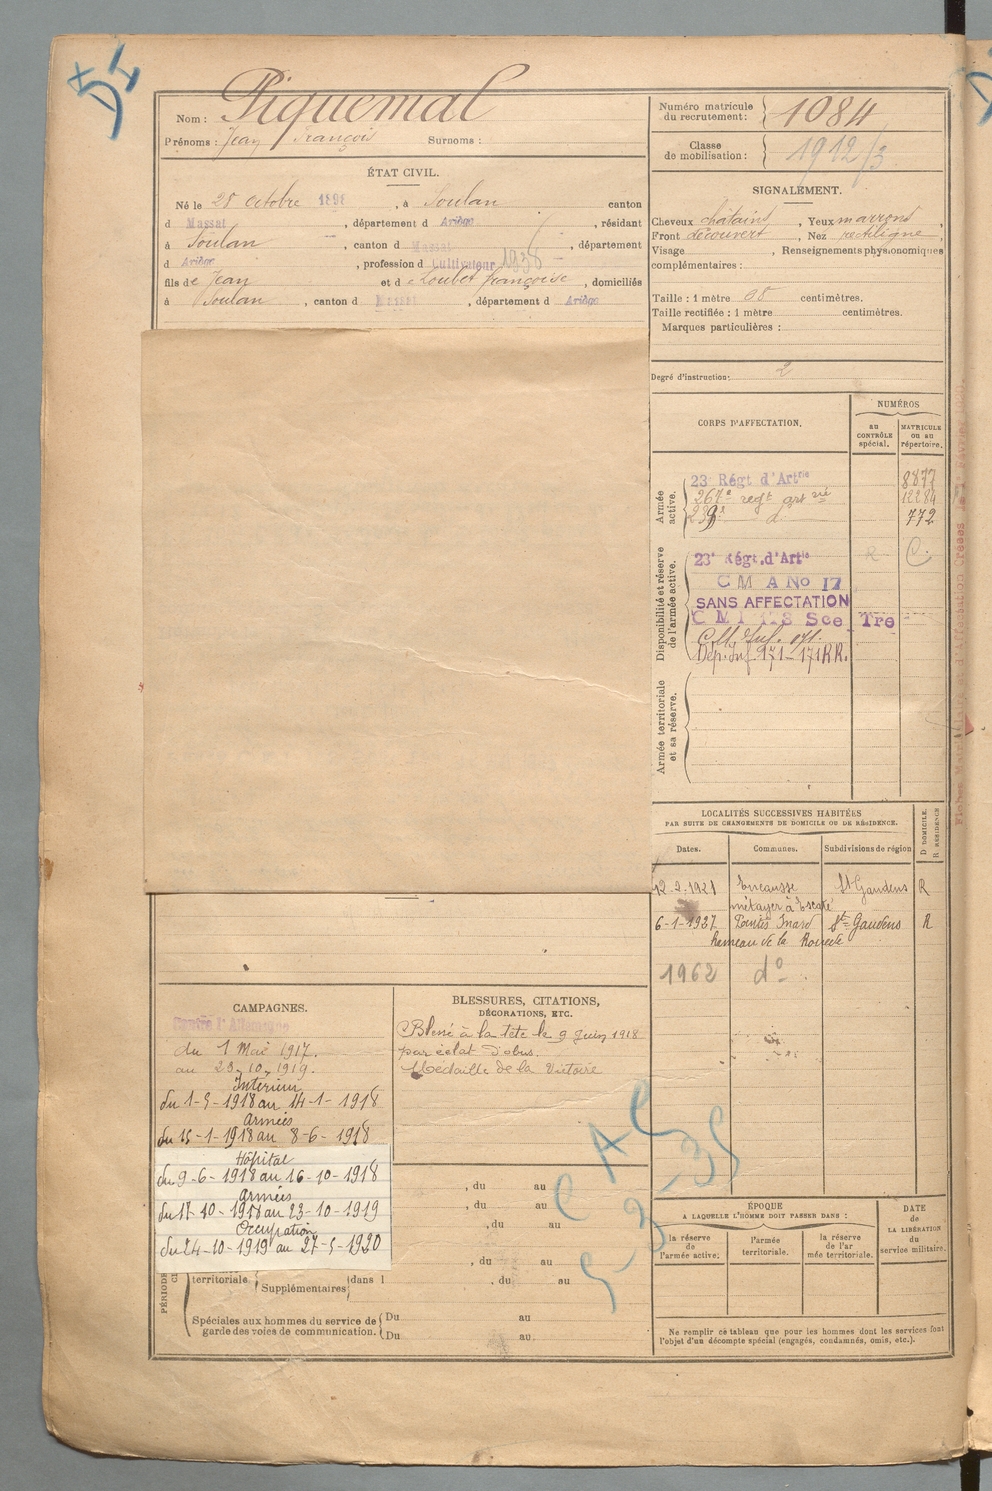 Nom : Piquemal
Prénoms : Jean François Surnoms :
ÉTAT CIVIL.
Né le 28 octobre 1898, à Soulan canton
d Massat, département d Ariège, résidant
à Soulan, canton d Massat, département
d Ariège, profession d Cultivateur
fils de Jean et de Loubet françoise, domiciliés
à Soulan, canton d Massat, département d Ariège
Numéro matricule du recrutement : 1084
Classe de mobilisation : 1912/3
SIGNALEMENT.
Cheveux châtains, Yeux marrons,
Front découvert, Nez rectiligne,
Visage , Renseignements physionomiques
complémentaires :
Taille : 1 mètre 08 centimètres.
Taille rectifiée : 1 mètre centimètres.
Marques particulières :
Degré d'instruction : 2
CORPS D'AFFECTATION.
NUMÉROS
au CONTRÔLE spécial.
MATRICULE ou au répertoire.
Armée active.
23e Régt d'Artrie 8877
267e regt artrie
772
Disponibilité et réserve de l'armée active.
23e Régt. d'Artie
C M A No 17
SANS AFFECTATION
C M I Sce Tre
Dép. Inf. 171 - 171 R.R.
Armée territoriale et sa réserve.
LOCALITÉS SUCCESSIVES HABITÉES
PAR SUITE DE CHANGEMENTS DE DOMICILE OU DE RÉSIDENCE.
Dates. Communes. Subdivisions de région D DOMICILE. R RÉSIDENCE
12-2-1921 Encausse St Gaudens R
métayer à
6-1-1927 Pointis Inard St Gaudens R
Hameau de la
1962 do
CAMPAGNES.
Contre l'Allemagne
du 1 Mai 1917.
au 23-10-1919.
Intérieur
du 1-5-1918 au 14-1-1918
Armées
du 15-1-1918 au 8-6-1918
Hôpital
du 9-6-1918 au 16-10-1918
Armées
du 17-10-1918 au 23-10-1919
Occupation
du 24-10-1919 au 27-5-1920
BLESSURES, CITATIONS,
DÉCORATIONS, ETC.
Blessé à la tête le 9 Juin 1918
par éclat d'obus.
Médaille de la Victoire
, du au
, du au
, du au
, du au
territoriale Supplémentaires dans l , du au
Spéciales aux hommes du service de garde des voies de communication. Du au
Du au
ÉPOQUE
A LAQUELLE L'HOMME DOIT PASSER DANS :
la réserve de l'armée active.
l'armée territoriale.
la réserve de l'armée territoriale.
DATE de LA LIBÉRATION du service militaire.
Ne remplir ce tableau que pour les hommes dont les services font
l'objet d'un décompte spécial (engagés, condamnés, omis, etc.).